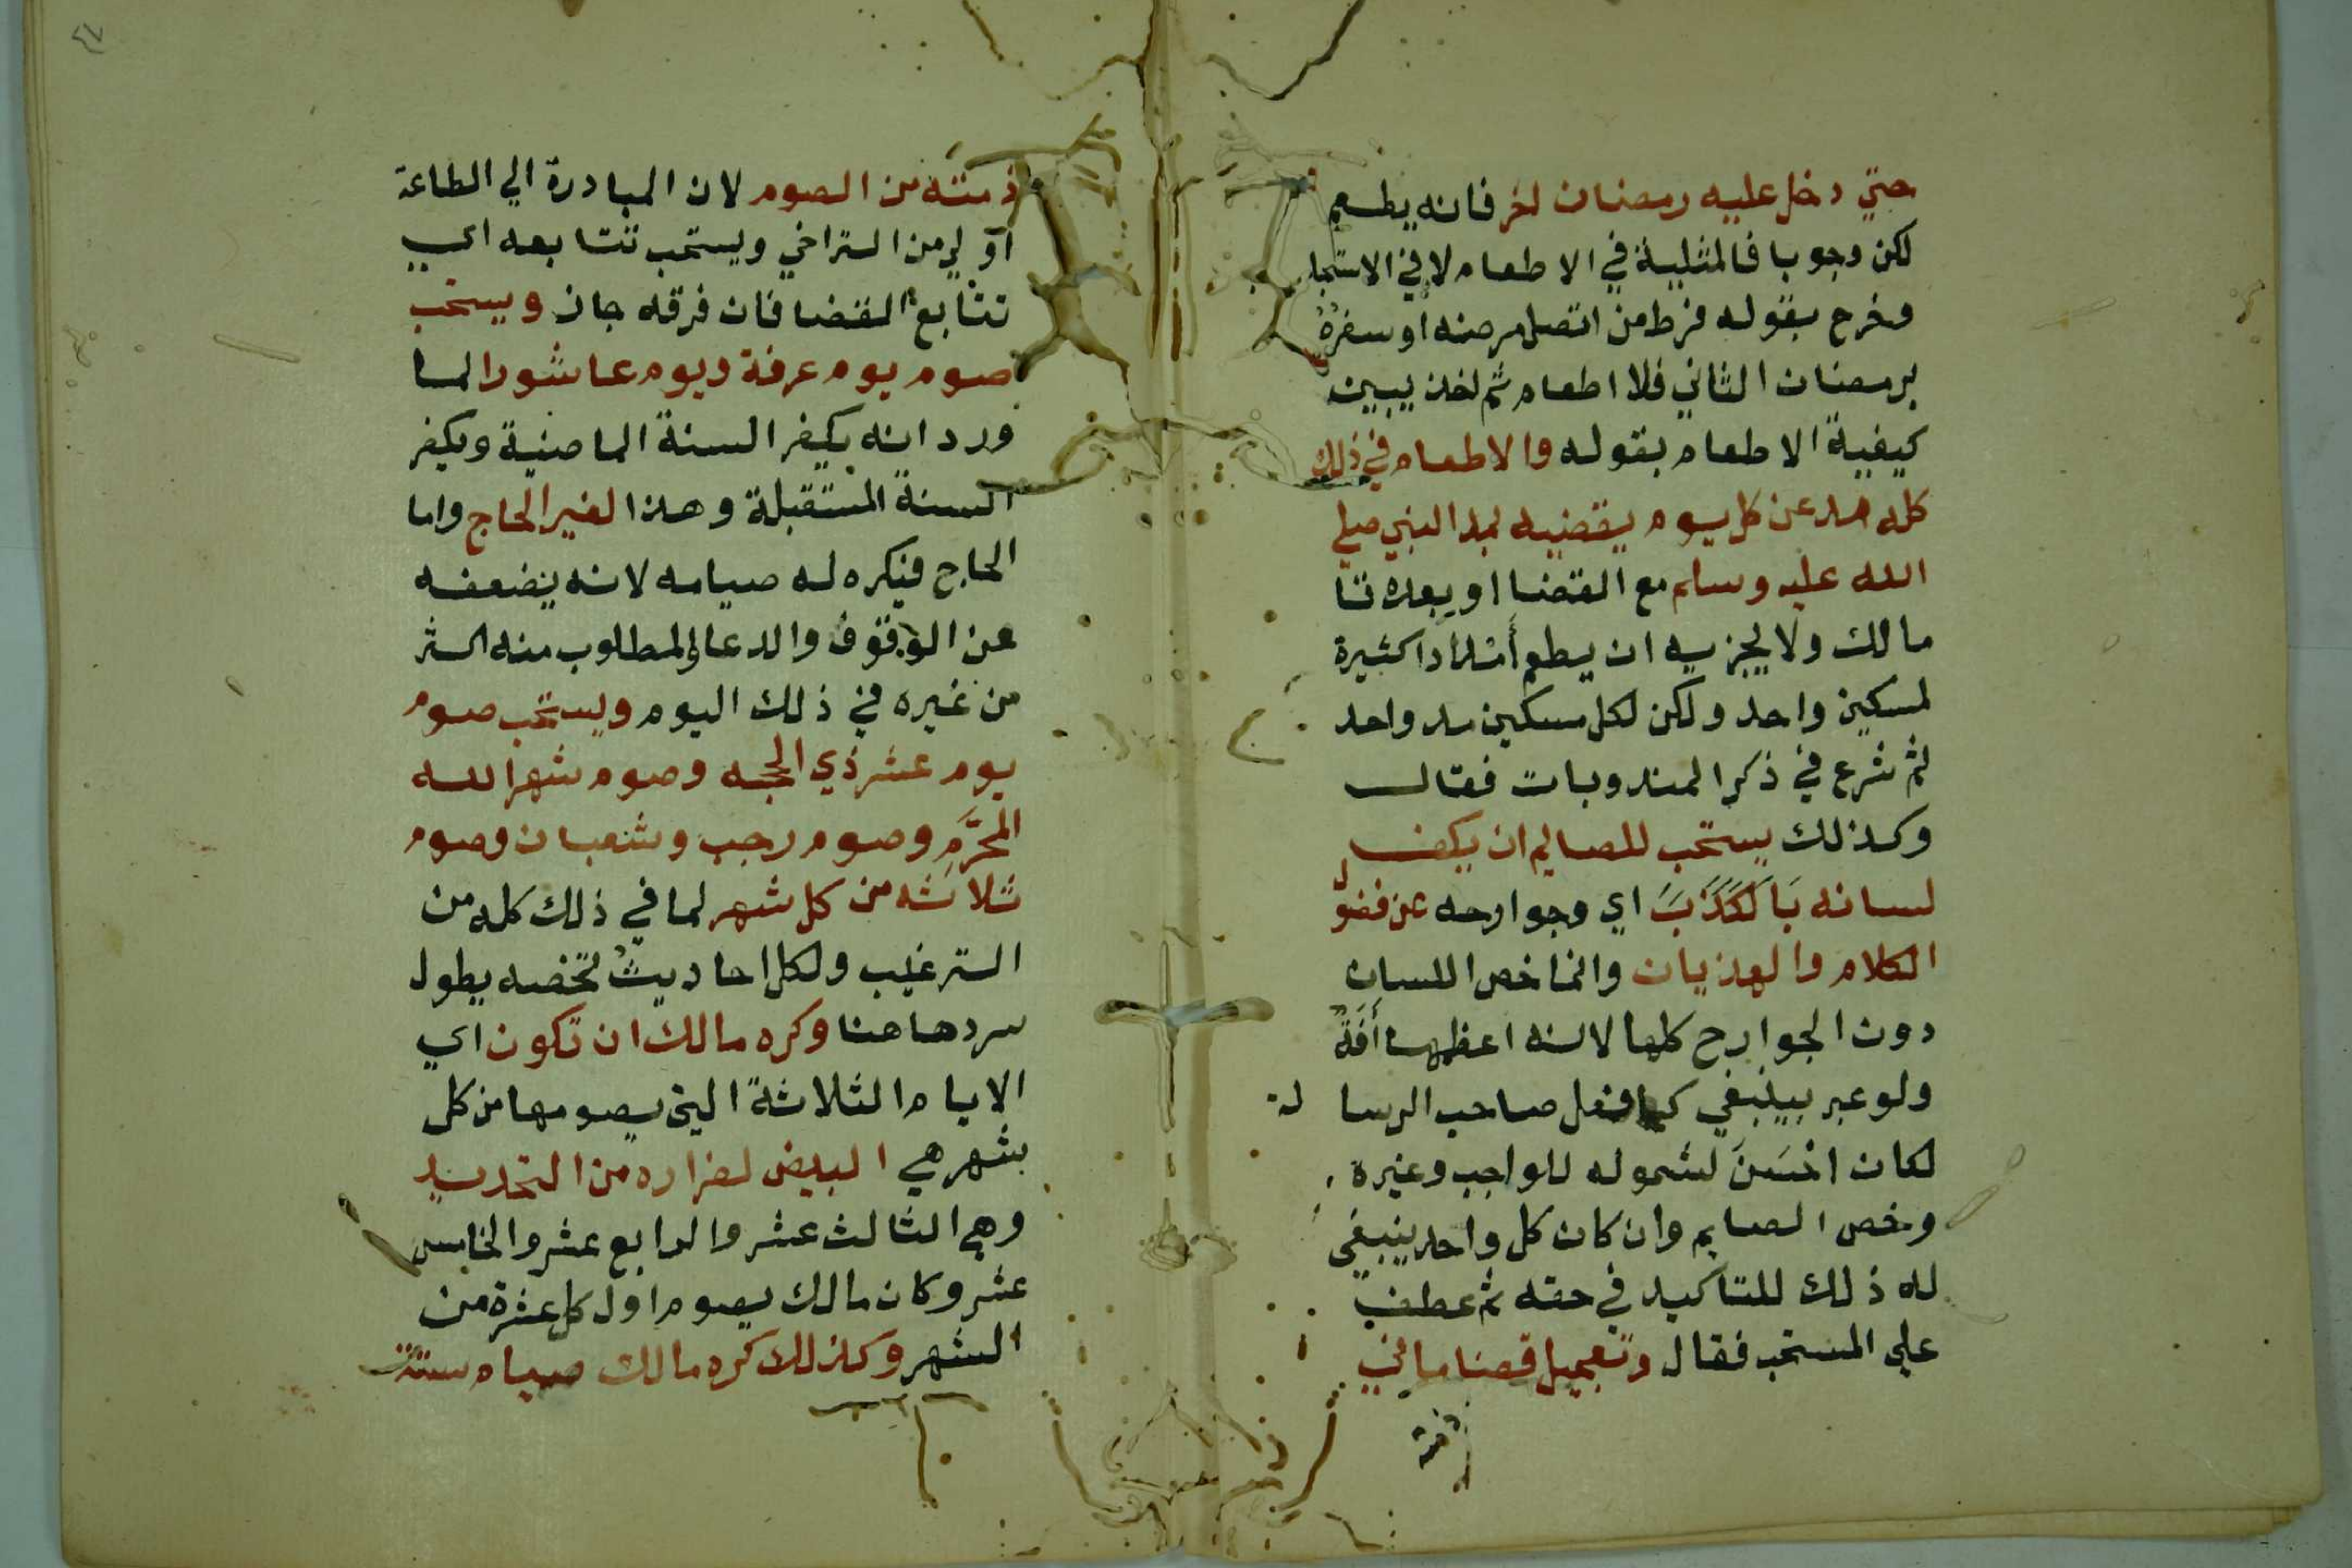 حتي دخل عليه رمضان اخر فانه يطعم
لكن وجوبا فالمثلية في الاطعام لا في الاستحبا
وخرج بقوله فرط من اتصل مرضه او سفره
برمضان الثاني فلا اطعام ثم اخذ يبين
كيفية الاطعام بقوله والاطعام في ذلك
كله مد عن كل يوم يقضيه بمد النبي صلي
الله عليه وسلم مع القضا او بعده
مالك ولا يجزيه ان يطعم أمدادا كثيرة
لمسكين واحد ولكن لكل مسكين مد واحد
ثم شرع في ذكر المندوبات فقال
وكذلك يستحب للصايم ان يكف
لسانه اي وجوارحه عن فضول
الكلام والهذيان وانما خص اللسان
دون الجوارح كلها لانه اعظمها أفَةً
ولو عبر بينبغي كما فعل صاحب الرسا لة
لكان احْسَنَ لشموله للواجب وغيره
وخص الصايم وان كان كل واحد ينبغي
له ذلك للتاكيد في حقه ثم عطف
علي المستحب فقال وتعجيل قضا ما في
ذمته
٤٧
ذمته من الصوم لان المبادرة الي الطاعة
اولي من التراخي ويستحب تتابعه اي
تتابع القضا فان فرقه جاز ويستحب
صوم يوم عرفة ويوم عاشورا لما
ورد انه يكفر السنة الماضية ويكفر
السنة المستقبلة وهذا لغير الحاج واما
الحاج فيكره له صيامه لانه يضعفه
عن الوقوف والدعا والمطلوب منه اكثر
من غيره في ذلك اليوم ويستحب صوم
يوم عشر ذي الحجه وصوم شهر الله
المحرَّم وصوم رجب وشعبان وصوم
ثلاثه من كل شهر لما في ذلك كله من
الترغيب ولكل احاديث تخصه يطول
سردها هنا وكره مالك ان تكون اي
الايام الثلاثة التي يصومها من كل
شهر هي البيض لفراره من التحديد
وهي الثالث عشر والرابع عشر والخامس
عشر وكان مالك يصوم اول كل عشرة من
الشهر وكذلك كره مالك صيام ستة